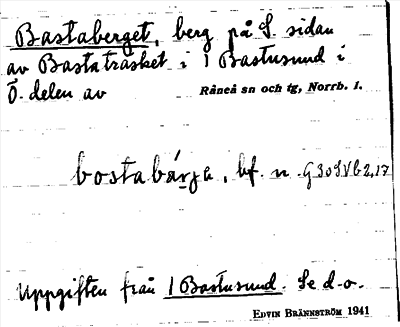 Bastaberget, berg på S. sidan
av Bastaträsket i 1 Bastusund i
Ö. delen av Råneå sn och tg, Norrb. l.
bostabárja, bf. n. G30SVb2,17
Uppgiften från 1 Bastusund. Se d.o.
EDVIN BRÄNNSTRÖM 1941